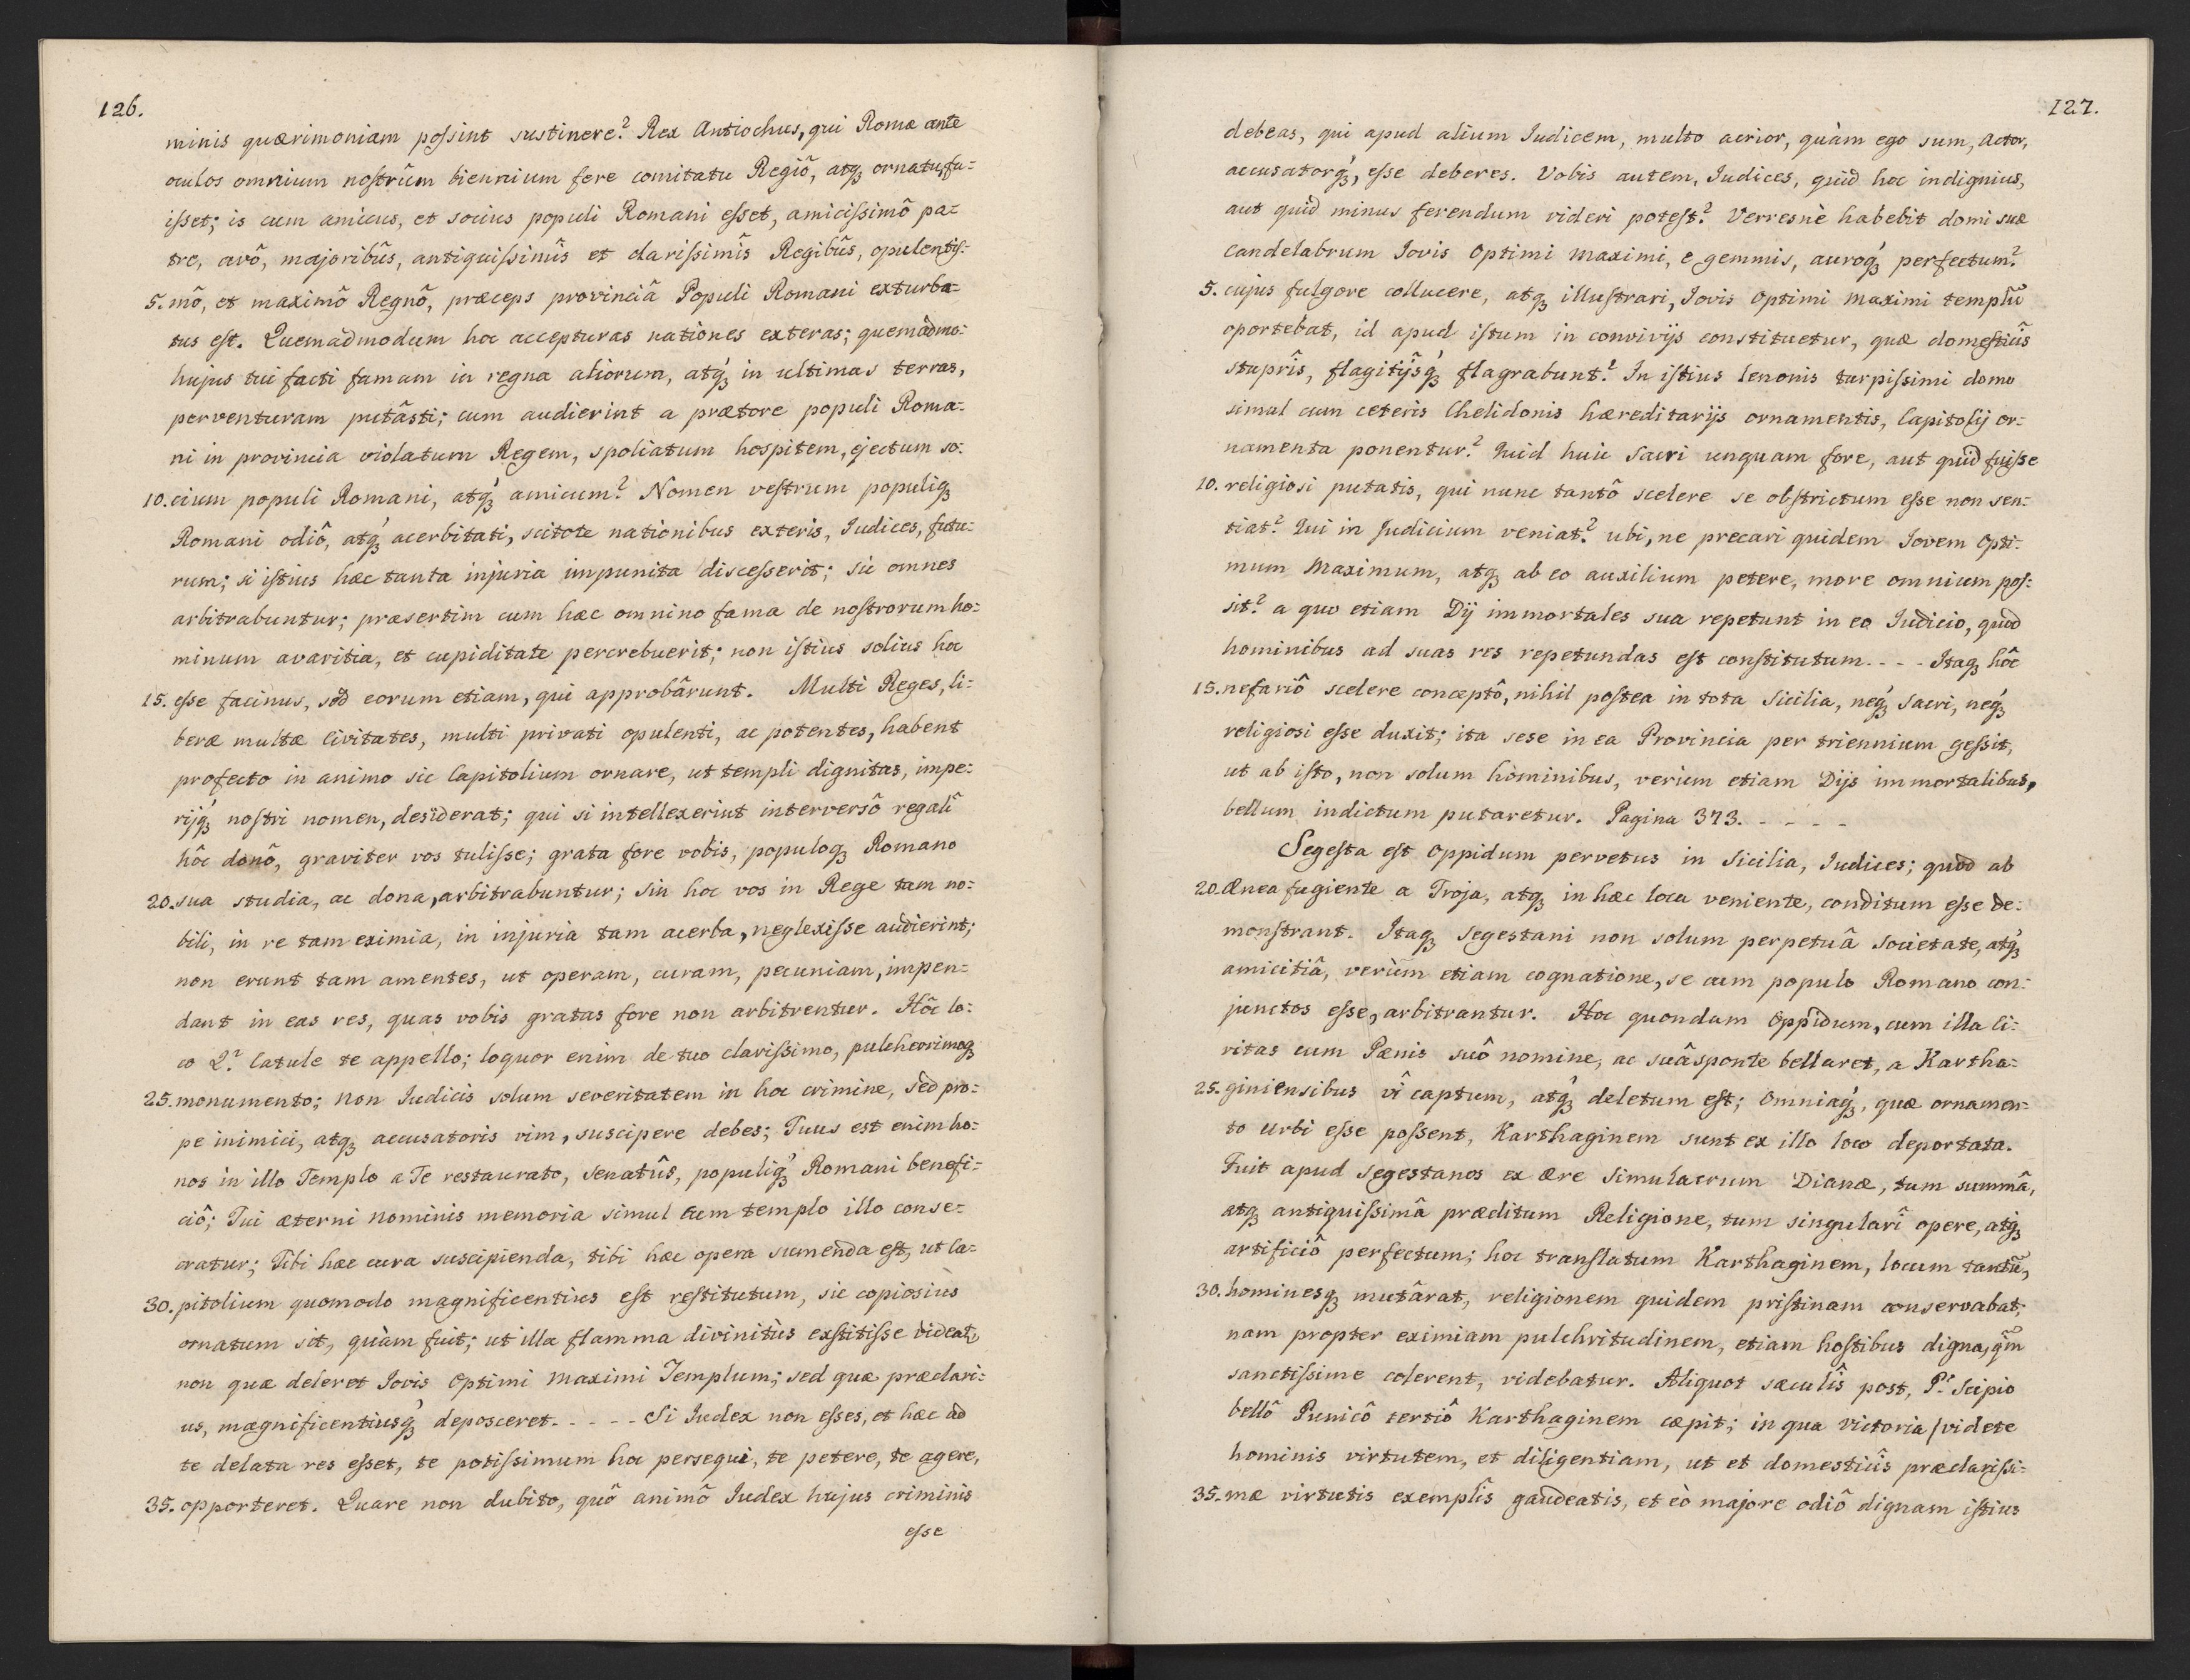 126.
minis quærimoniam poſsint sustinere? Rex Antiochus, qui Romæ ante
oculos omnium noſtrûm biennium fere comitatu Regiô, atq₃ ornatu, fu=
iſset; is cum amicus, et socius populi Romani eſset, amiciſsimô pa=
tre, avô, majoribûs, antiquiſsimîs et clariſsimîs Regibûs, opulentiſ=
5. mô, et maximô Regnô, præceps provinciâ Populi Romani exturba=
tus eſt. Quemadmodum hoc accepturas nationes exteras; quemadmo=
hujus tui facti famam in regna aliorum, atq́₃ in ultimas terras,
perventuram putâsti; cum audierint a prætore populi Roma=
ni in provincia violatum Regem, spoliatum hospitem, ejectum so=
10. cium populi Romani, atq́₃ amicum? Nomen veſtrum populiq₃
Romani odiô, atq́₃ acerbitati, scitote nationibus exteris, Iudices, futu=
rum; si iſtius hæc tanta injuria impunita disceſserit; sic omnes
arbitrabuntur; præsertim cum hæc omnino fama de noſtrorum ho=
minum avaritia, et cupiditate percrebuerit; non iſtius solius hoc
15. eſse facinus, sed eorum etiam, qui approbârunt. Multi Reges, li=
beræ multæ Civitates, multi privati opulenti, ac potentes, habent
profecto in animo sic Capitolium ornare, ut templi dignitas, impe=
rijq́₃ noſtri nomen, desiderat; qui si intellexerint interversô regalî
hôc donô, graviter vos tuliſse; grata fore vobis, populoq₃ Romano
20. sua studia, ac dona, arbitrabuntur; sin hoc vos in Rege tam no=
bili, in re tam eximia, in injuria tam acerba, neglexiſse audierint;
non erunt tam amentes, ut operam, curam, pecuniam, impen=
dant in eas res, quas vobis gratas fore non arbitrentur. Hôc lo=
co Q? Catule te appello; loquor enim de tuo clariſsimo, pulcherrimoq₃
25. monumento; non Iudicis solum severitatem in hoc crimine, sed pro=
pe inimici, atq₃ accusatoris vim, suscipere debes; Tuus est enim ho=
nos in illo Templo a Te restaurato, Senatûs, populiq́₃ Romani benefi=
ciô; Tui æterni nominis memoria simul cum templo illo conse=
cratur; Tibi hæc cura suscipienda, tibi hæc opera sumenda eſt, ut Ca=
30. pitolium quomodo magnificentius eſt reſtitutum, sic copiosius
ornatum sit, quàm fuit; ut illa flamma divinitùs exſtitiſse videat₎,
non quæ deleret Jovis Optimi Maximi Templum; sed quæ præclari=
us, magnificentiusq́₃ deposceret. - - - - Si Iudex non eſses, et hæc ad
te delata res eſset, te potiſsimum hoc persequi, te petere, te agere,
35. opporteret. Quare non dubito, quô animô Iudex hujus criminis
eſse
127.
debeas, qui apud alium Iudicem, multo acrior, quàm ego sum, Actor,
accusatorq́₃, eſse deberes. Vobis autem, Iudices, quid hoc indignius,
aut quid minus ferendum videri poteſt? Verresnè habebit domi suæ
Candelabrum Iovis Optimi Maximi, e gemmis, auroq́₃ perfectum?
5. cujus fulgore collucere, atq₃ illuſtrari, Jovis Optimi Maximi templũ
oportebat, id apud iſtum in convivijs constituetur, quæ domeſticîs
stuprîs, flagitijsq́₃ flagrabunt? In iſtius lenonis turpiſsimi domo
simul cum ceteris Chelidonis hæreditarijs ornamentis, Capitolij or=
namenta ponentur? Quid huic Sacri unquam fore, aut quid fuiſse
10. religiosi putatis, qui nunc tantô scelere se obſtrictum eſse non sen=
tiat? Qui in Judicium veniat? ubi, ne precari quidem Jovem Opti=
mum Maximum, atq₃ ab eo auxilium petere, more omnium poſ=
sit? a quo etiam Dij immortales sua repetunt in eo Iudicio, quod
hominibus ad suas res repetundas eſt conſtitutum. - - - Itaq₃ hôc
15. nefariô scelere conceptô, nihil poſtea in tota Sicilia, neq́₃ Sacri, neq́₃
religiosi eſse duxit; ita sese in ea Provincia per triennium geſsit,
ut ab iſto, non solum hominibus, verùm etiam Dijs immortalibus,
bellum indictum putaretur. Pagina 373. - - - -
Segeſta eſt Oppidum pervetus in Sicilia, Iudices; quod ab
20. Ænea fugiente a Troja, atq₃ in hæc loca veniente, conditum eſse de=
monſtrant. Itaq₃ Segestani non solum perpetuâ societate, atq́₃
amicitiâ, verùm etiam cognatione, se cum populo Romano con=
junctos eſse, arbitrantur. Hoc quondam Oppidum, cum illa Ci=
vitas cum Pænis suô nomine, ac suâ sponte bellaret, a Kartha=
25. giniensibus vî captum, atq́₃ deletum eſt; Omniaq́₃, quæ ornamen=
to Urbi eſse poſsent, Karthaginem sunt ex illo loco deportata.
Fuit apud Segestanos ex Ære Simulacrum Dianæ, tum summâ,
atq₃ antiquiſsimâ præditum Religione, tum singularî opere, atq₃
artificiô perfectum; hoc tranſlatum Karthaginem, locum tantũ,
30. hominesq₃ mutârat, religionem quidem priſtinam conservabat;
nam propter eximiam pulchritudinem, etiam hoſtibus digna, q̃m
sanctiſsime colerent, videbatur. Aliquot sæculîs post, P.? Scipio
bellô Punicô tertiô Karthaginem cæpit; in qua Victoria /videte
hominis virtutem, et diligentiam, ut et domesticîs præclariſsi=
35. mæ virtutis exemplîs gaudeatis, et eò majore odiô dignam iſtius